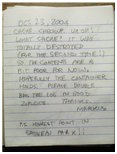 OCT 23, 2004
CACHE CHECKUP. UH OH!
WHAT CACHE? IT WAS
TOTALLY DESTROYED
(FOR THE SECOND TIME!)
SO THE CONTENTS ARE A
BIT POOR FOR NOW.
HOPEFULLY THE CONTAINER
HOLDS. PLEASE DOUBLE
BAG THE LOG IN GOOD
ZIPLOCS. THANKS,
IS HIGHEST POINT IN
PARK!!